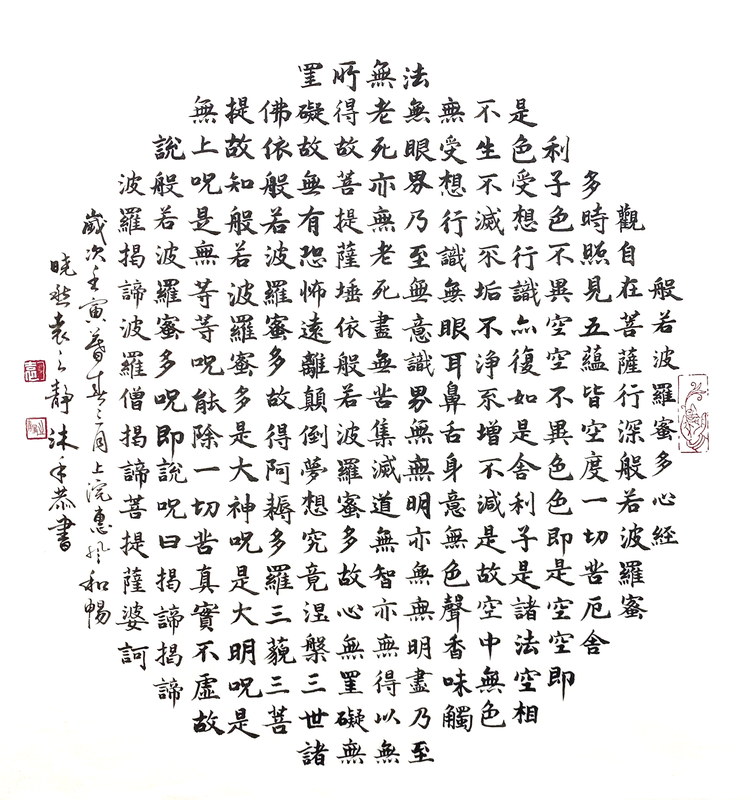 般若波羅蜜多心經
觀自在菩薩行深般若波羅蜜
多時照見五蘊皆空度一切苦厄舍
利子色不異空空不異色色即是空空即
是色受想行識亦復如是舍利子是諸法空相
不生不滅不垢不淨不增不減是故空中無色
無受想行識無眼耳鼻舌身意無色聲香味觸
法無眼界乃至無意識界無無明亦無無明盡乃至
無老死亦無老死盡無苦集滅道無智亦無得以無
所得故菩提薩埵依般若波羅蜜多故心無罣礙無
罣礙故無有恐怖遠離顛倒夢想究竟涅槃三世諸
佛依般若波羅蜜多故得阿耨多羅三藐三菩
提故知般若波羅蜜多是大神呪是大明呪是
無上呪是無等等呪能除一切苦真實不虛故
說般若波羅蜜多呪即說呪曰揭諦揭諦
波羅揭諦波羅僧揭諦菩提薩婆訶
歲次壬寅暮春三月上浣惠風和暢
曉袁之靜沐手恭書